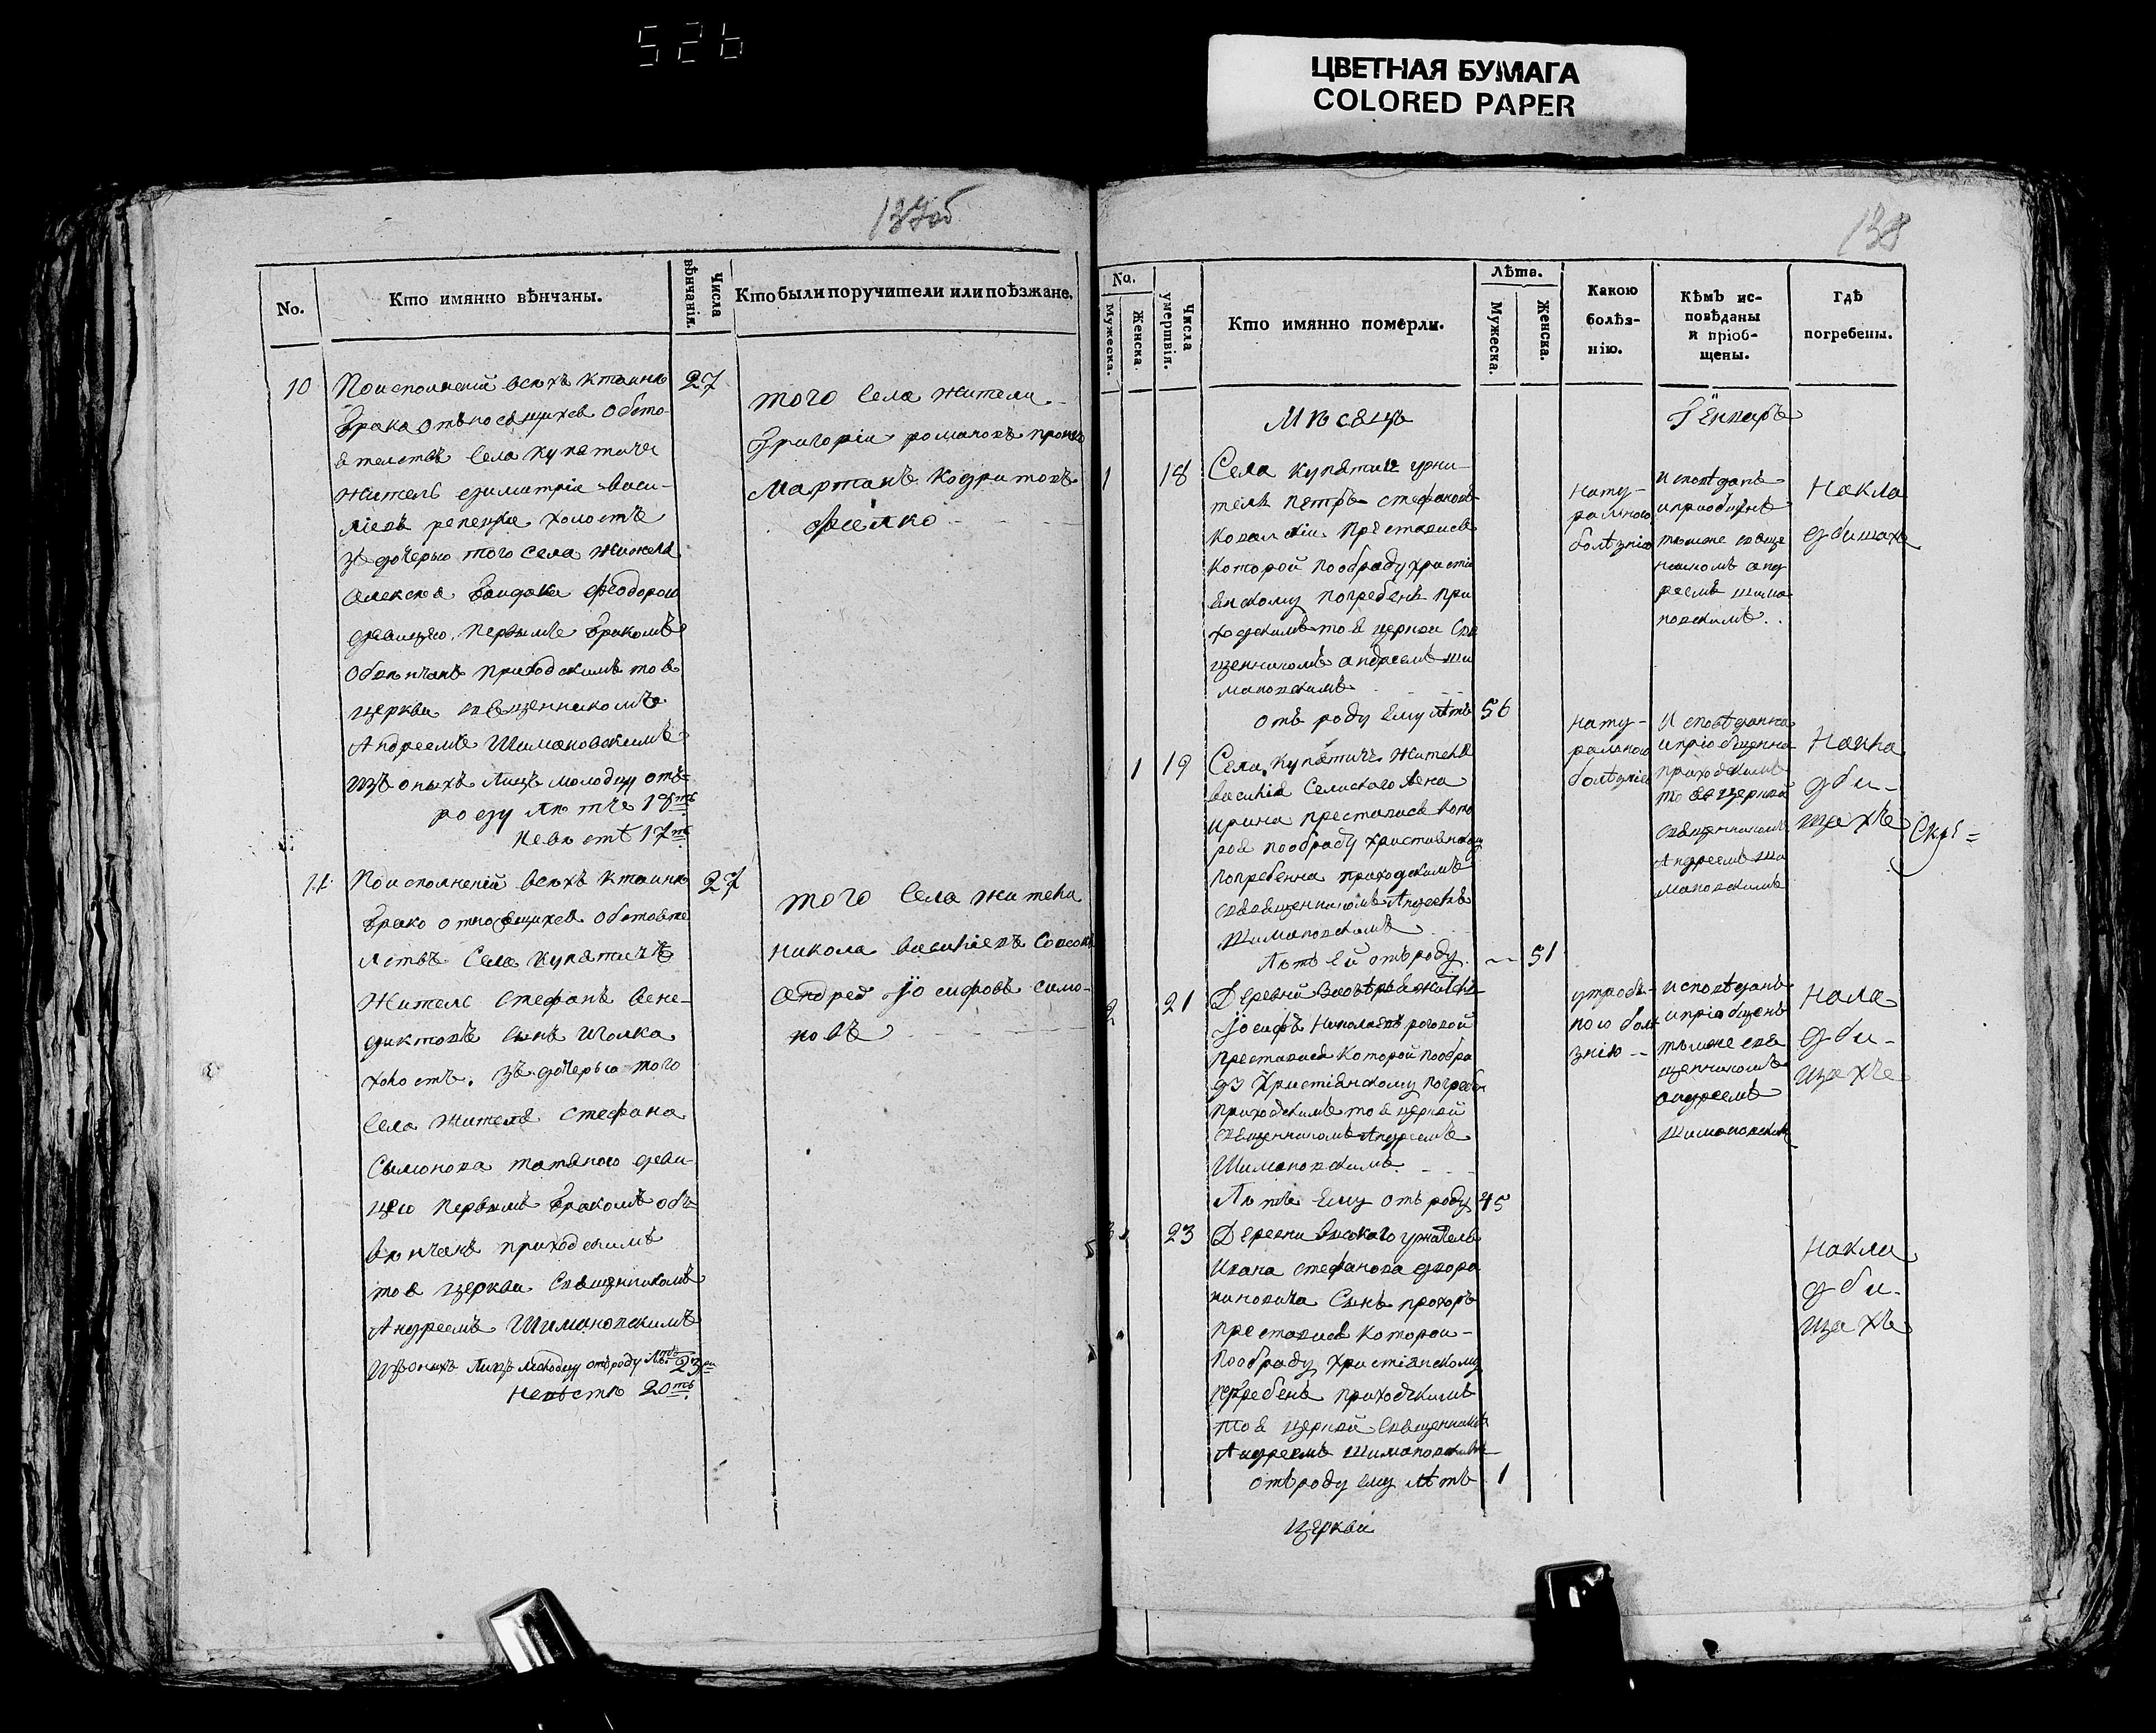 526
ЦВЕТНАЯ БУМАГА
COLORED PAPER
137об
No.
Кто имянно вѣнчаны.
Числа вѣнчанія.
Кто были поручители или поѣзжане.
10
По исполненіи всѣхъ ктаинѣ
27
брака отъносящихся обсто-
ятелствъ Села Купятичъ
житель Димитріи Васи-
ліевъ холостъ
зъ дочерью того Села жителя
Алексея Феодорою
девицею первымъ бракомъ
обвѣнчанъ приходскимъ тоя
церкви священникомъ
Андреемъ Шимановскимъ
изъ оныхъ лицъ молодцу отъ
роду лѣтъ 18ть
невѣстѣ 17ть
того Села жители
Григоріи романовъ
Мартинъ Кодратовъ
11
По исполненіи всѣхъ ктаинѣ
27
брако относящихся обстояте
лствъ Села Купятичъ
Житель Стефанъ Вене-
диктовъ сынъ Шолка
холостъ. зъ дочерью того
Села жителя Стефана
Сымонова татяною деви-
цею первымъ бракомъ объ
вѣнчанъ приходскимъ
тоя церкви Священникомъ
Андреемъ Шимановскимъ
изъ оныхъ лицъ молодцу отъ роду лѣтъ 23ри
невѣстѣ 20ть
того Села жители
никола Василіевъ
Андрей Іосифовъ симо-
новъ
138
No.
Мужеска.
Женска.
Числа умертвія.
Кто имянно померли.
Лѣта.
Мужеска.
Женска.
Какою болѣз-
нію.
Кѣмъ ис-
повѣданы
и пріоб-
щены.
Гдѣ
погребены.
Мѣсяцъ
Генварь
1
18
Села Купятичъ
тель Петръ Стефановъ
Ковалскіи Преставися
которой пообряду христі
янскому погребенъ при
ходскимъ тоя церкви Свя
щенникомъ Андреемъ Ши
мановскимъ
отъ роду ему лѣтъ
56
нату-
ралною
болѣзнію
исповѣданъ
и пріобщенъ
тымже свяще
нникомъ Анд
реемъ Шима
новскимъ
На кла
дбищахъ
1
19
Села Купятичъ Жителя
Василія Селиского жена
Ирина преставися кото
рая пообряду христианскому
погребенна приходскимъ
священникомъ Андреемъ
Шимановскимъ
Лѣтъ ей отъ роду
51
нату-
ралною
болѣзнію
Исповѣданна
и пріобщенна
приходскимъ
тоя церкви
священникомъ
Андреемъ Ши
мановскимъ
На кла
дби-
щахъ
2
21
Деревни
Іосифъ Николаевъ роговой
преставися Которой пообря
ду Христіянскому погребенъ
приходскимъ тоя церкви
священникомъ Андреемъ
Шимановскимъ
Лѣтъ Ему отъ роду
45
утроб-
ною болѣ
знію
исповѣданъ
и пріобщенъ
тымже свя
щенникомъ
андреемъ
Шимановскимъ
На кла
дби-
щахъ
3
23
Деревни Высокого
Ивана Стефанова двора
ниновича Сынъ прохоръ
преставися которои
пообряду христіянскому
погребенъ приходскимъ
тоя церкви священникомъ
Андреемъ Шимановскимъ
отъ роду ему лѣтъ
1
На кла
дби-
щахъ
церкви